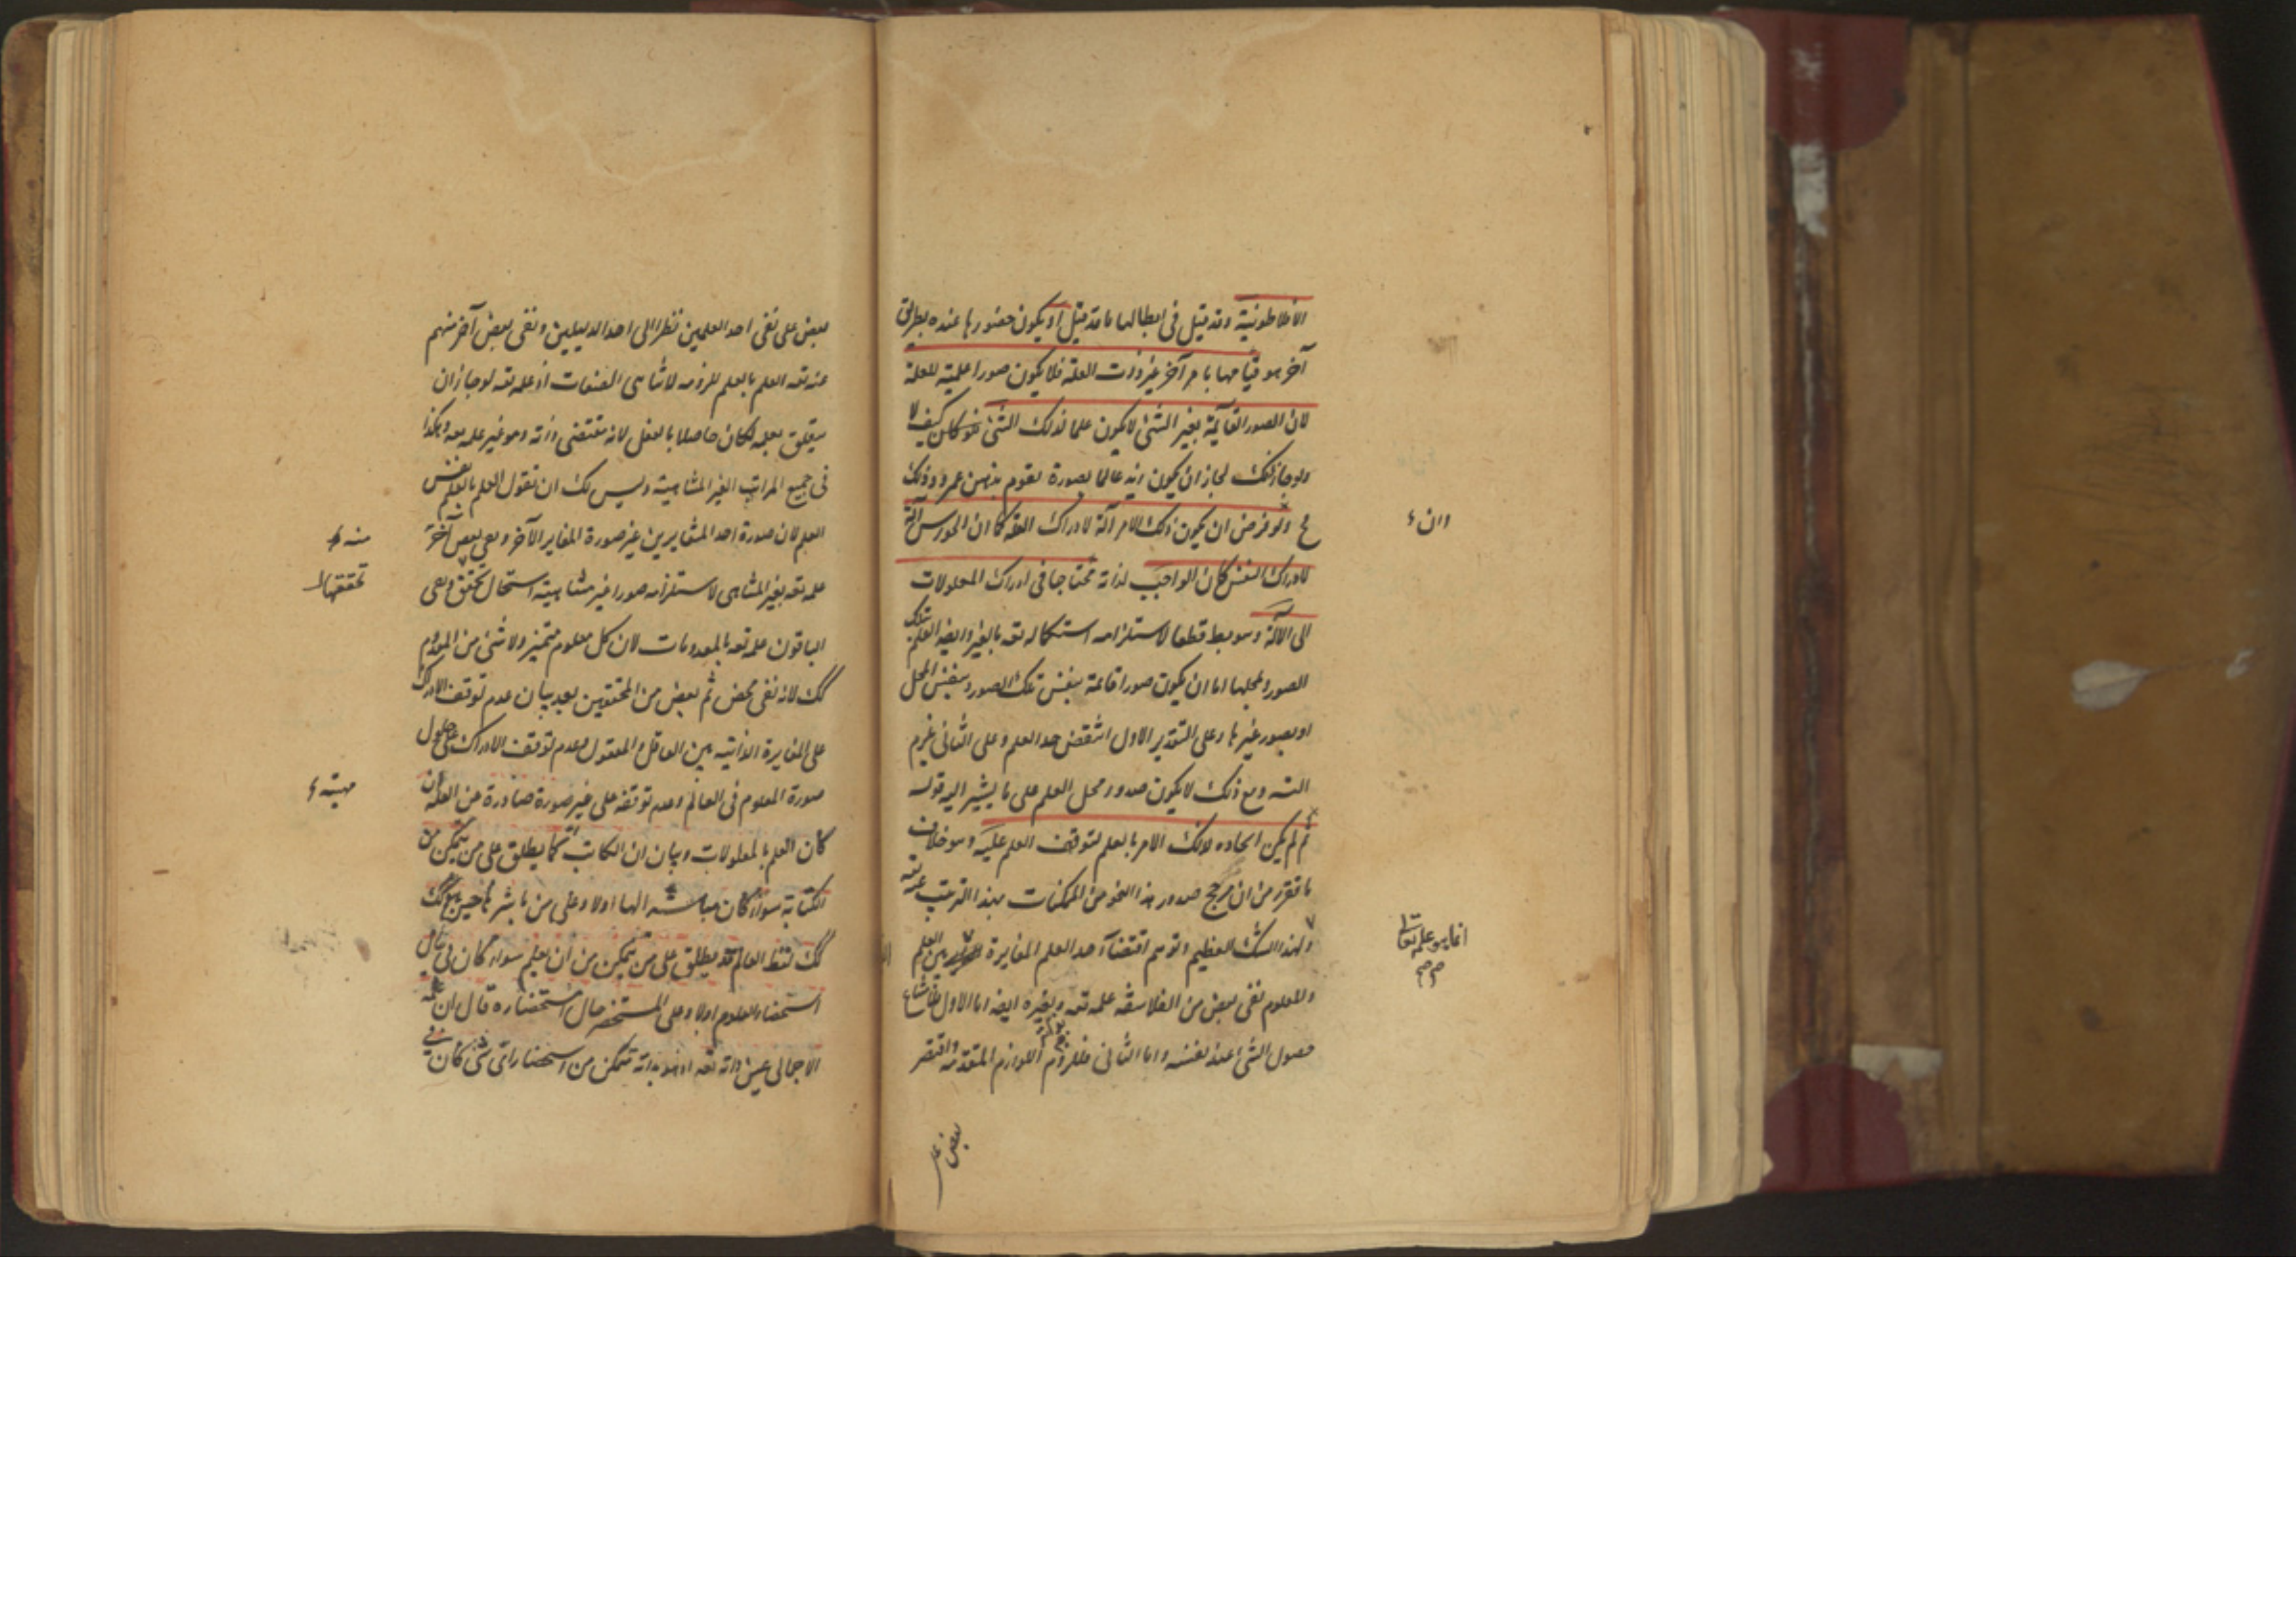 الافلاطونية وقد قيل فى ابطالها ما قد قيل او يكون حضورها عنده بطريق
آخر هو قيامها بامر آخر غير ذات العلة فلا يكون صورا علمية للعلة
لان الصور القايمة بغير الشئ لا يكون علما لذلك الشئ كيف لا
ولو جاز ذلك لجاز ان يكون زيد عالما بصورة تقوم بذهن عمرو وذلك
مح ولو فرض ان يكون ذلك الامر آلة لادراك العلة كما ان الحواس آلة
لادراك النفس لكان الواجب لذاته محتاجا فى ادراك المعلولات
الى الآلة وهو بط قطعا لاستلزامه استكماله تعه بالغير وايضا العلم بتلك
الصور ولمحلها اما ان يكون صورا قائمة بنفس تلك الصور وبنفس المحل
او بصور غيرها وعلى التقدير الاول انتقض حد العلم وعلى الثانى لزم
التسه ومع ذلك لا يكون صدور محل العلم على ما يشير اليه قوله
ثم لم يكن ايجاده لذلك الامر بالعلم لتوقف العلم عليه وهو خلاف
ما تقرر من ان مرجح صدور هذا النحو من الممكنات بهذا الترتيب عنه تعه
ولهذا الشك العظيم وتوهم اقتضآء حد العلم المغايرة بين العلم
والمعلوم نفى بعض من الفلاسفة علمه تعه وبغيره ايضا اما الاول
حصول الشئ عند نفسه واما الثانى فللزوم اللوازم المتقدمة واقتصر
وان
انما هو علمه تعالى
صح صح
بعض على
بعض على نفى احد العلمين نظرا الى احد الدليلين ونفى بعض آخر منهم
عنه تعه العلم بالعلم للزومه لا تناهى الصفات اذ علمه تعه لو جاز ان
يتعلق بعلمه لكان حاصلا بالفعل لانه مقتضى ذاته وهو غير علمه به وهكذا
فى جميع المراتب الغير المتناهية وليس لك ان تقول العلم بالعلم نفس
العلم لان صورة احد المتغايرين غير صورة المغاير الآخر ونفى بعض آخر
علمه تعه بغير المتناهى لاستلزامه صورا غير متناهية استحال تحقق ونفى
الباقون علمه تعه بالمعدومات لان كل معلوم متميز ولا شئ من المعدوم
كك لانه نفى محض ثم بعض من المحققين بعد بيان عدم توقف الادراك
على المغايرة الذاتية بين العاقل والمعقول وعدم توقف الادراك على حلول
صورة المعلوم فى العالم وعدم توقفه على غير صورة صادرة عن العلة ان
كان العلم بالمعلولات وبيان ان الكاتب كما يطلق على من يتمكن من
الكتابة سواء كان مباشرا لها اولا وعلى من باشرها حين يباشر كك
كك لفظ العالم قد يطلق على من يتمكن من ان يعلم سواء كان فى حال
استحضار المعلوم اولا وعلى المستحضر حال استحضاره قال ان علمه
الاجمالى عين ذاته تعه اذ هو بذاته متمكن من استحضار اى شئ كان
منه
تحققها
مهيته